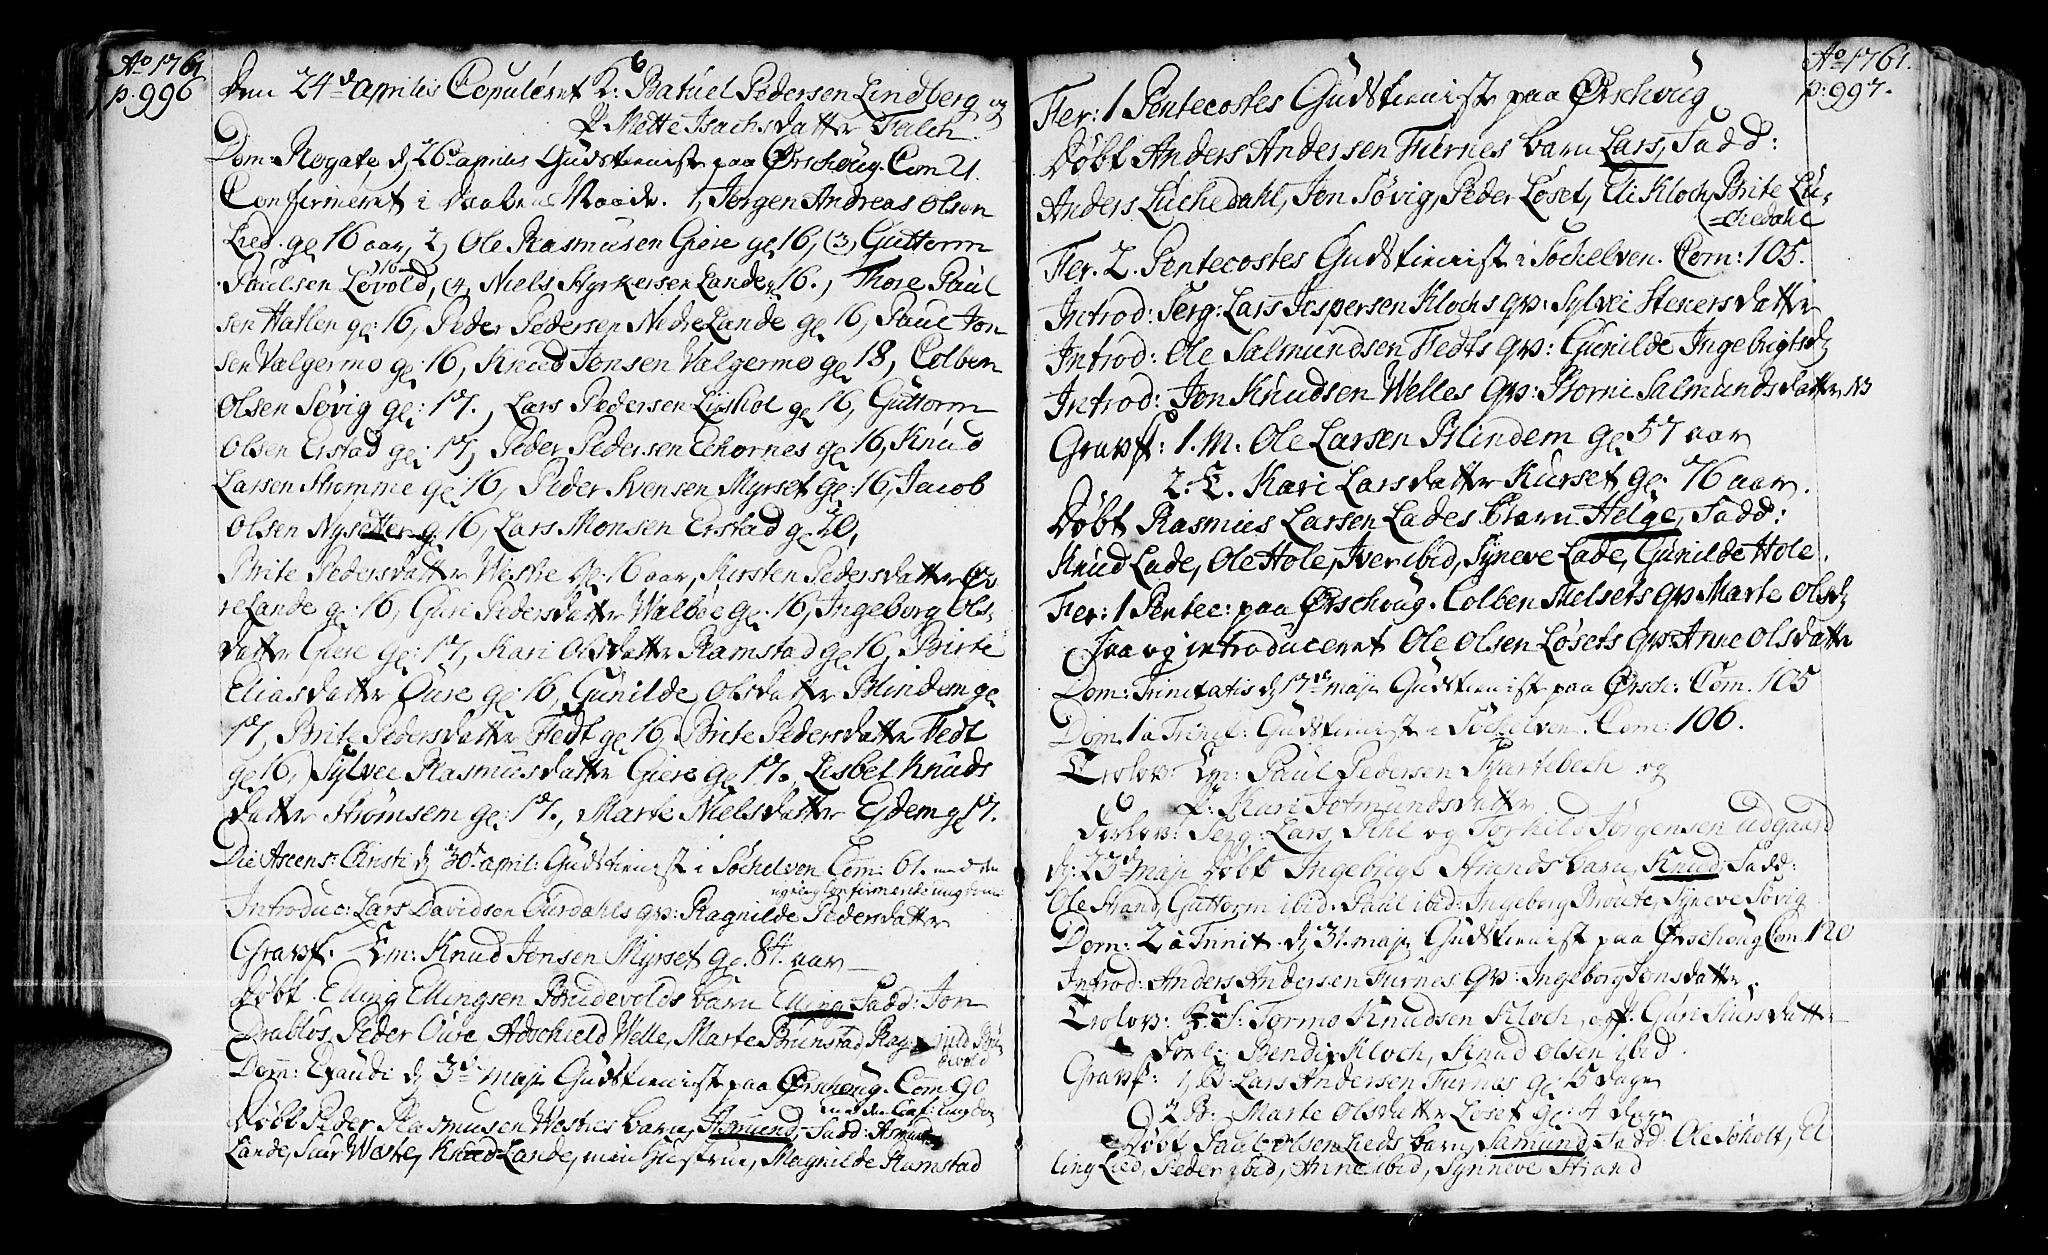 Ao 1761
p. 996
den 24de Aprilis Copuleret K: Batuel Pedersen Lindberg og
P. Mette Isachsdatter Falch.
Dom: Rogate, d 26 aprilis Gudstienist paa Ørschoug. Com 21.
Confirmeret i 1, Jørgen Andreas Olsen
Lied. gl 16 aar, 2, Ole Rasmusen Giere gl 16, (3, Guttorm
Paulsen Løvold, 16 (4, Niels Styrkersen Lande 16., Thore Paul
sen Hatlen gl: 16, Peder Pedersen Nedre Lande gl 16, Paul Jon
sen Valgermo gl: 16, Knud Jonsen Valgermo gl 18, Colben
Olsen Søvig gl: 17., Lars Pedersen Liishol gl 16, Guttorm
Olsen Erstad gl: 17, Peder Pedersen Echornes gl 16, Knud
Larsen Strømme gl 16, Peder Svensen Myrset gl: 16, Jacob
Olsen Nysetter g 16, Lars Monsen Erstad g 20,
Brite Pedersdatter Westre gl: 16 aar, Kirsten Pedersdatter Øv
reLande gl: 16, Guri Pedersdatter Walbøe gl. 16, Ingeborg Ols-
datter Giere gl: 17, Kari Olsdatter Ramstad gl 16, Birte
Eliasdatter Oure gl 16, Gunilde Olsdatter Blindem gl
17, Brite Pedersdatter Fedt gl 16, Brite Pedersdatter Fedt
gl 16, Sylvei Rasmusdatter Giere gl 17. Lisbet Knuds
datter Strømsem gl: 17., Marte Nielsdatter Ejdem gl 17.
Die Ascens: Christi d 30te april: Gudstienist i Søchelven Com: 61. med den
confirmerede ungdom
Introduc: Lars Davidsen Ourdahls qv: Ragnilde Pedersdatter
Gravf. Em: Knud Jonsen Myrset gl. 84. aar
Døbt. Elling Ellingsen Brudevolds barn Elling, Fadd: Jon
Drabløs, Peder Oure, Adschield Welle, Marte Brunstad, Rag
nild Bru
devold
Dom: Exaudi d 3de maji Gudstienist paa Ørschoug. Com 90
med den Conf: ungdom
Døbt Peder Rasmusen Westres barn, Asmund, Fadd: Asmund
Lande, Siur Westre, Knud Lande, min Hustrue, Magnilde Ramstad
Ao 1761.
p. 997.
Fer: 1 Pentecostes Gudstienist paa Ørschoug
Døbt Anders Andersen Furnes barn Lars, Fadd:
Anders Luchedahl, Jon Søvig, Peder Løset, Eli Kloch, Brite Lu-
chedahl
Fer. 2. Pentecostes Gudstienist i Søchelven. Com: 105.
Introd: Serg: Lars Jespersen Klochs qv: Sylvei Stenersdatter
Introd: Ole Salmundsen Fedts qv: Gunilde Ingebrigtsd
Introd: Jon Knudsen Welles qv: Borni Salmundsdatter NB
Gravf: 1. M. Ole Larsen Blindem gl 57 aar
2. E. Kari Larsdatter Kurset gl. 76 aar.
Døbt Rasmus Larsen Lades barn Helge, Fadd:
Knud Lade, Ole Hole, Iver ibid, Syneve Lade, Gunilde Hole.
Fer: 1 Pentec: paa Ørschoug. Colben Melsets qv Marte Olsd
Saa og introduceret Ole Olsen Løsets qv: Anne Olsdatter
Dom: Trinitatis d 17de maji Gudstienist paa Ørsch: Com. 105
Dom 1 a Trinit: Gudstienist i Søchelven. Com: 106.
Trolov: Em: Paul Pedersen Svartebech og
P. Kari Jetmundsdatter
Forlov: Serg: Lars Fihl og Torkild Jørgensen Udgaard
d: 23d maji Døbt Ingebrigt Strands barn, Knud, Fadd:
Ole Strand, Guttorm ibid. Paul ibid: Ingeborg Brøute, Syneve Søvig
Dom: 2 a Trinit. d 31. maji Gudstienist paa Ørschoug Com 120
Introd: Anders Andersen Furnes qv: Ingeborg Jonsdatter.
Trolov: Tormo Knudsen Kloch, og P. Guri Siursdatter
Forl: Bendix Kloch, Knud Olsen ibid.
Gravf: 1, B Lars Andersen Furnes gl 15 dage
2 B: Marte Olsdatter Løset gl: 4 dage
Døbt Paul Olsen Lieds barn, Samund Fadd: Ole Søholt, El
ling Lied, Peder ibid, Anne ibid, Synneve Strand